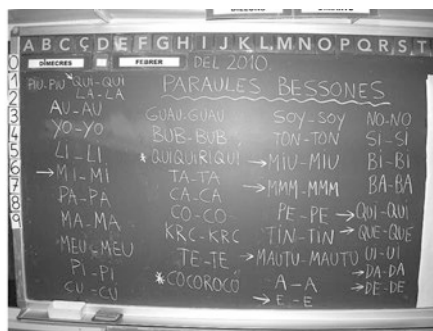 A B C Ç D E F G H I J K L M N O P Q R S T
0 1 2 3 4 5 6 7 8 9
DIMECRES FEBRER DEL 2010
PARAULES BESSONES
PIU-PIU
QUI-QUI
LA-LA
AU-AU
YO-YO
LI-LI
→MI-MI
PA-PA
MA-MA
MEU-MEU
PI-PI
CU-CU
GUAU-GUAU
BUB-BUB
*QUIQUIRIQUI
TA-TA
CA-CA
CO-CO
KRC-KRC
TE-TE
*COCOROCÓ
SOY-SOY
TON-TON
→MIU-MIU
→MMM-MMM
PE-PE
TIN-TIN
→MAUTU-MAUTU
A-A
→E-E
NO-NO
SI-SI
BI-BI
BA-BA
→QUI-QUI
→QUE-QUE
UI-UI
→DA-DA
→DE-DE